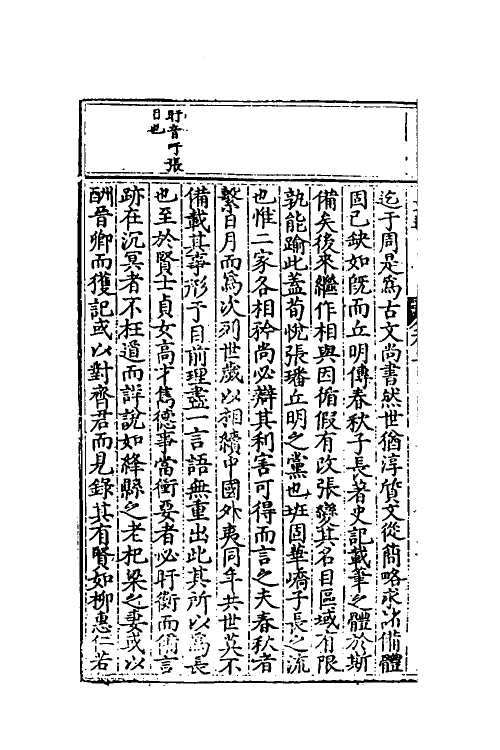 迄于周是爲古文尚書然世猶淳質文從簡略求諸備體
固已缺如旣而丘明傳春秋子長著史記載筆之體於斯
備矣後來繼作相與因循假有改張變其名目區域有限
孰能踰此蓋荀悅張璠丘明之黨也班固華嶠子長之流
也惟二家各相矜尚必辯其利害可得而言之夫春秋者
繫日月而爲次列世歲以相續中國外夷同年共世莫不
備載其事形于目前理盡一言語無重出此其所以爲長
也至於賢士貞女高才儁德事當衝要者必盱衡而備言
跡在沉冥者不枉道而詳說如絳縣之老杞梁之妻或以
酬晉卿而獲記或以對齊君而見錄其有賢如柳惠仁若
盱音吁張
目也